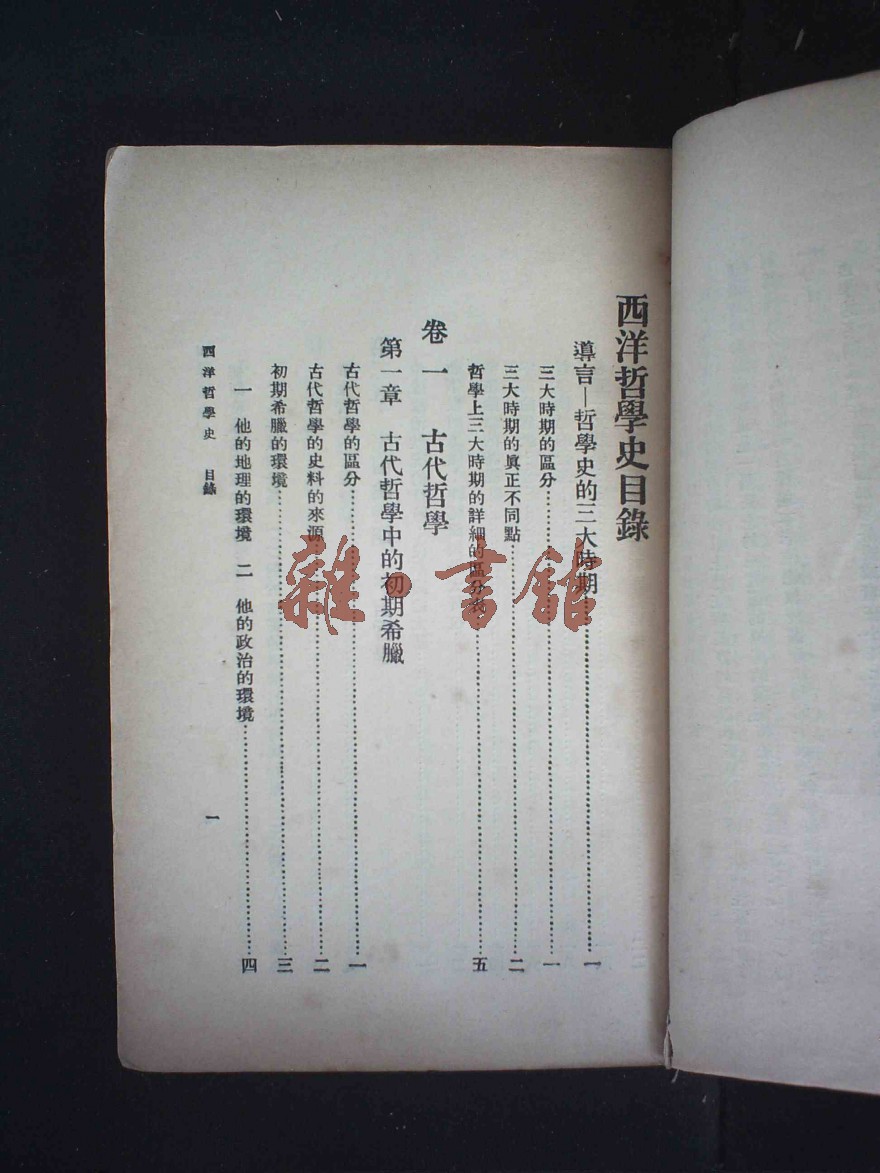 西洋哲學史目錄
導言—哲學史的三大時期……一
三大時期的區分……一
三大時期的眞正不同點……二
哲學上三大時期的詳細的區分表……五
卷一 古代哲學
第一章 古代哲學中的初期希臘
古代哲學的區分……一
古代哲學的史料的來源……二
初期希臘的環境……三
一 他的地理的環境 二 他的政治的環境……四
西洋哲學史 目錄 一
雜·書館